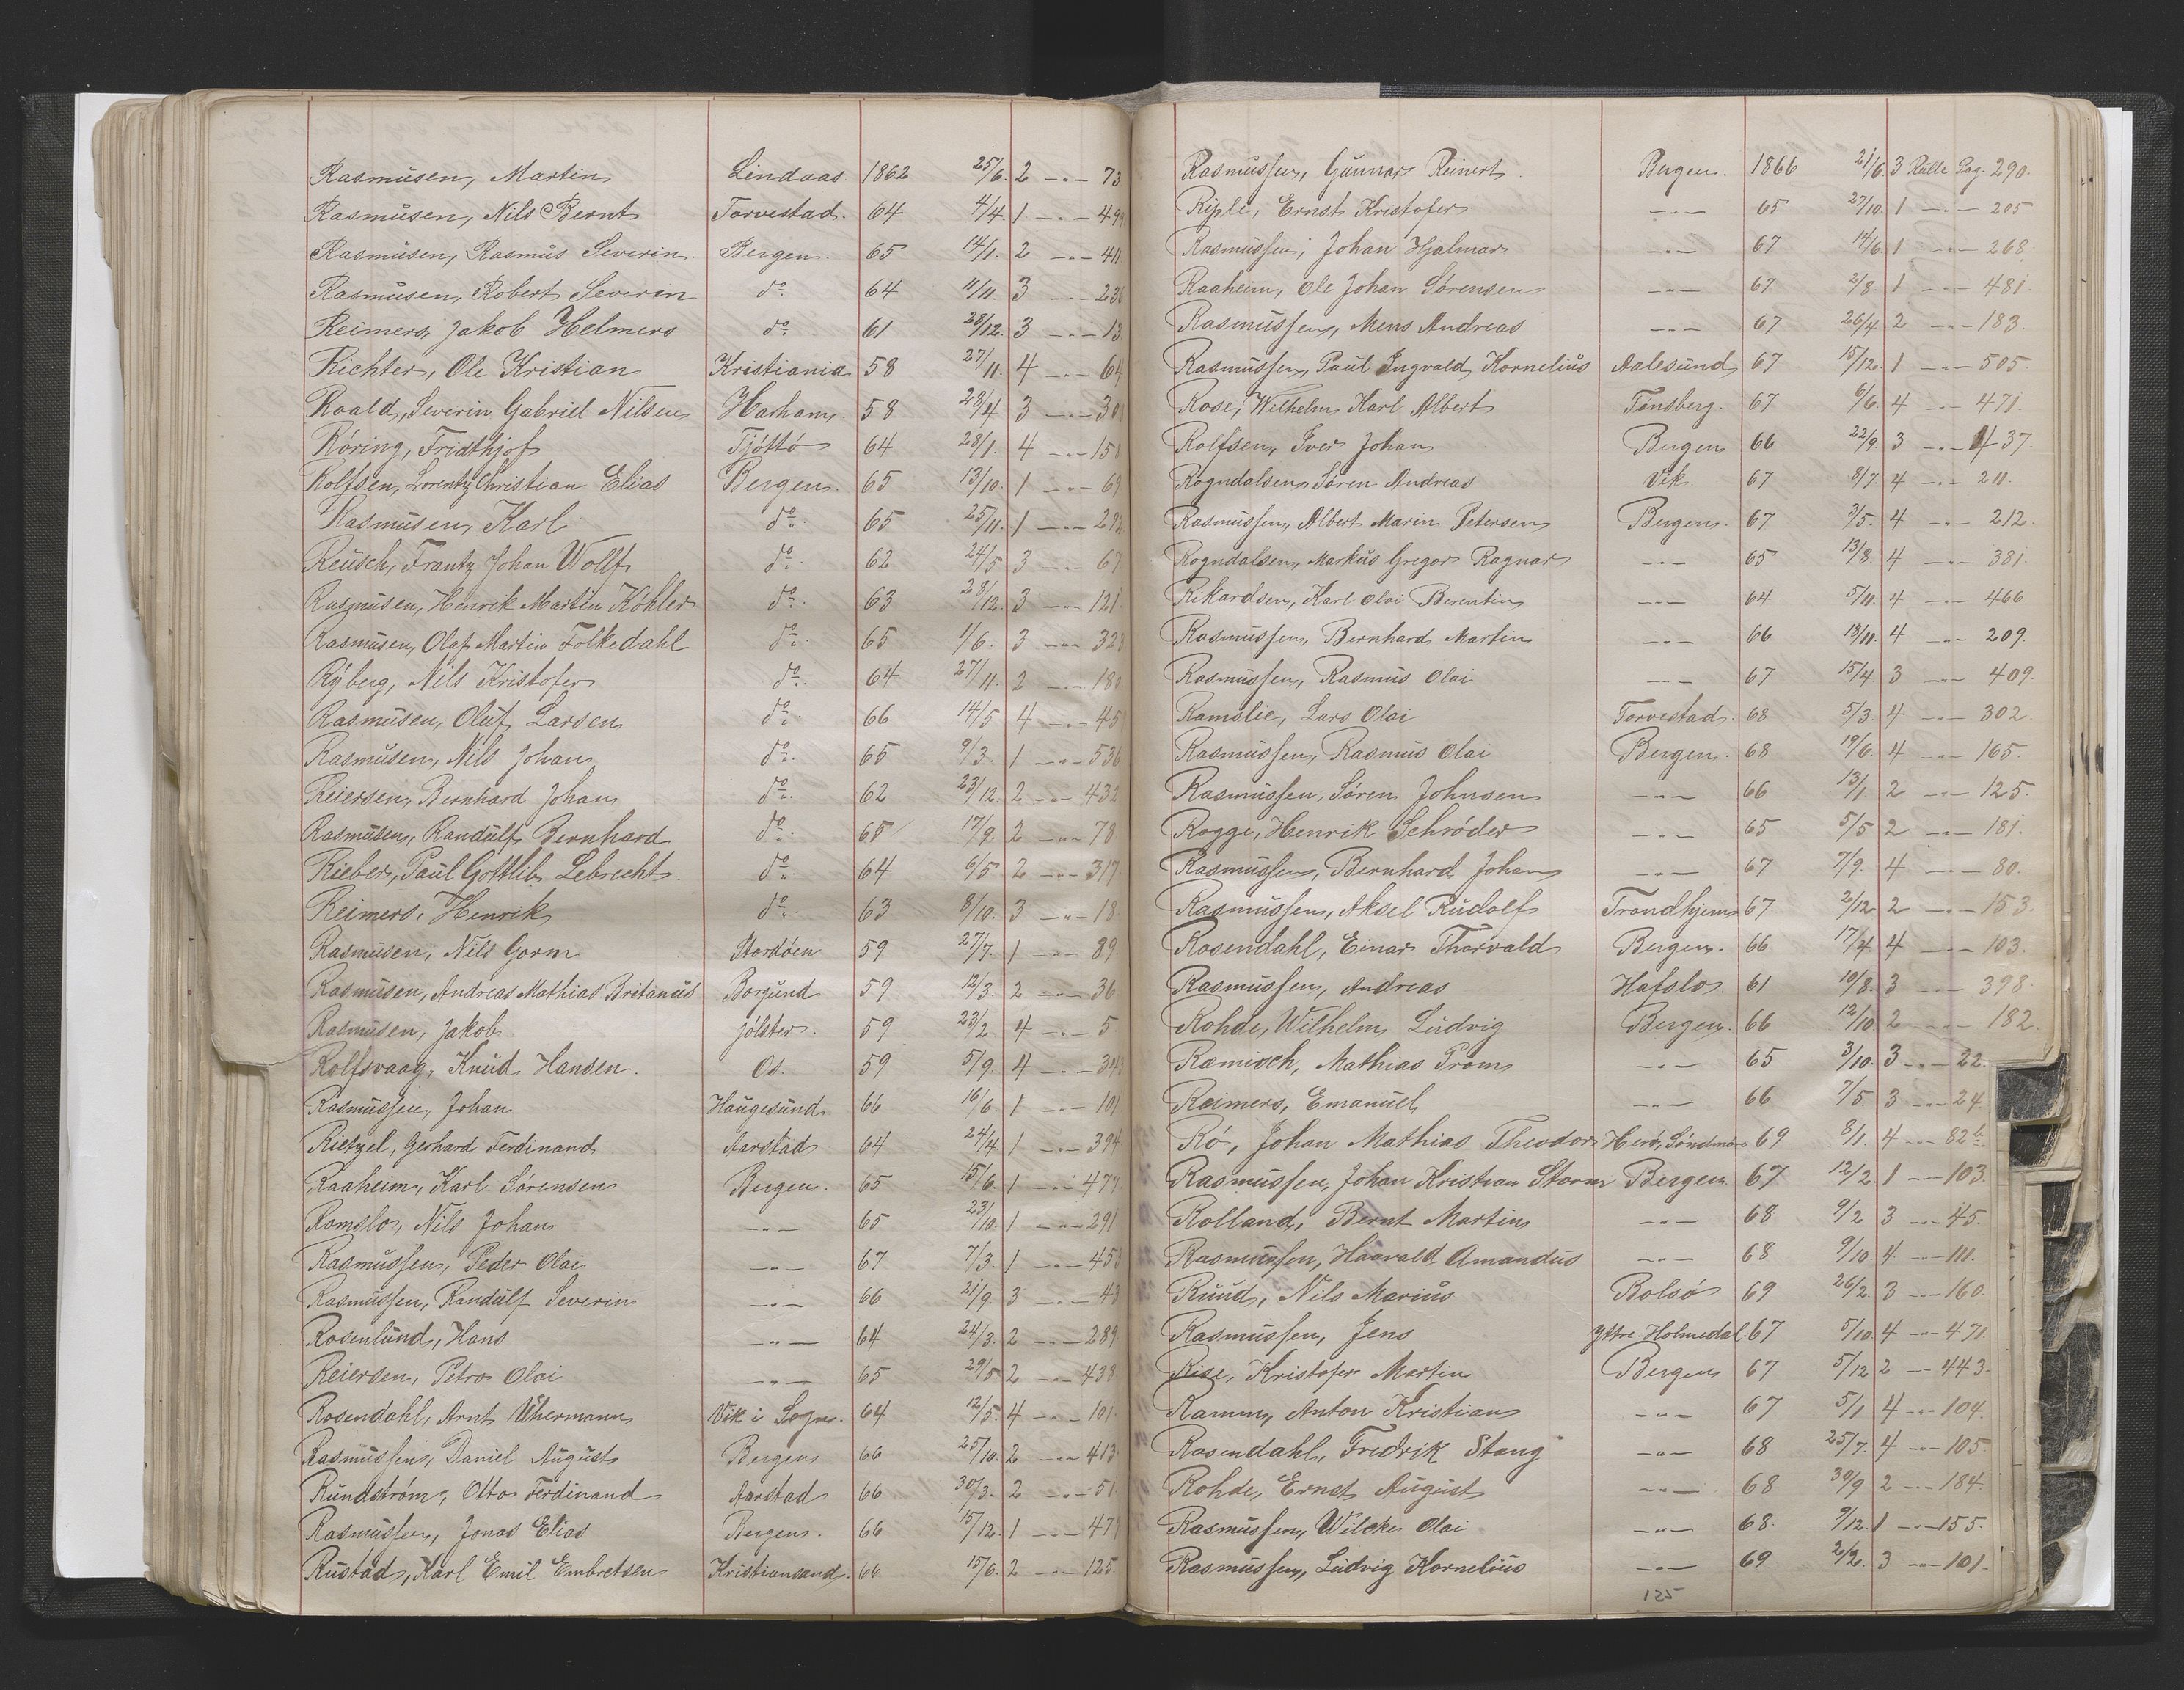 Rasmusen, Martin Lindaas. 1862 25/6. 2 -"- 73
Rasmusen, Nils Bernt Torvestad. 64 4/4. 1 -"- 499
Rasmusen, Rasmus Severin. Bergen. 65 14/1. 2 -"- 411
Rasmusen, Robert Severin do. 64 11/11. 3 -"- 236
Reimers, Jakob Helmers do. 61 28/12. 3 -"- 13
Richter, Ole Kristian Kristiania 58 27/11. 4 -"- 64
Roald, Severin Gabriel Nilsen Harham. 58 28/4 3 -"- 30
Röring, Fridthjof Tjöttö 64 28/1. 4 -"- 150
Rolfsen, Lorentz Christian Elias Bergen. 65 13/10. 1 -"- 69
Rasmusen, Karl do. 65 25/11. 1 -"- 292
Reusch, Frantz Johan Wollf do. 62 24/5 3 -"- 67
Rasmusen, Henrik Martin Köhler do. 63 28/12. 3 -"- 121
Rasmusen, Olaf Martin Folkedahl do. 65 1/6. 3 -"- 323
Ryberg, Nils Kristofer do. 64 27/11. 2 -"- 180
Rasmusen, Oluf Larsen do. 66 14/5 4 -"- 45
Rasmusen, Nils Johan do. 65 9/3. 1 -"- 536
Reiersen, Bernhard Johan do. 62 23/12. 2 -"- 432
Rasmusen, Randulf Bernhard do. 65 17/9. 2 -"- 78
Rieber, Paul Gottlib Lebrecht. do. 64 6/5 2 -"- 317
Reimers, Henrik do. 63 8/10. 3 -"- 18
Rasmusen, Nils Gorm Stordöen 59 27/7. 1 -"- 89.
Rasmusen, Andreas Mathias Britanus Borgund 59 12/3. 2 -"- 36
Rasmusen, Jakob Jölster. 59 23/2. 4 -"- 5
Rolfsvaag, Knud Hansen. Os. 59 5/9. 4 -"- 343
Rasmussen, Johan Haugesund 66 16/6. 1 -"- 101
Rietzel, Gerhard Ferdinand Aarstad 64 24/4. 1 -"- 394
Raaheim, Karl Sörensen Bergen. 65 15/6. 1 -"- 477
Romslo, Nils Johan -"- 65 23/10. 1 -"- 291
Rasmussen, Peder Olai -"- 67 7/3. 1 -"- 453
Rasmussen, Randulf Severin -"- 66 21/9. 3 -"- 43
Rosenlund, Hans -"- 64 24/3. 2 -"- 289
Reiersen, Petro Olai -"- 65 29/5. 2 -"- 438
Rosendahl, Arnt Uhermann Vik i Sogn. 64 12/5. 4 -"- 101.
Rasmussen, Daniel August Bergen 66 25/10. 2 -"- 413
Rundström, Otto Ferdinand Aarstad 66 30/3. 2 -"- 51
Rasmussen, Jonas Elias Bergen. 66 15/12. 1 -"- 479
Rustad, Karl Emil Embretsen Kristiansand. 66 15/6. 2 -"- 125
Rasmussen, Gunnar Reinert. Bergen. 1866 21/6. 3 Rulle Pag. 290.
Riple, Ernst Kristofer -"- 65 27/10. 1 -"- 205.
Rasmussen, Johan Hjalmar -"- 67 14/6. 1 -"- 268
Raaheim, Ole Johan Sörensen -"- 67 2/8. 1 -"- 481.
Rasmussen, Mens Andreas -"- 67 26/4 2 -"- 183.
Rasmussen, Paul Ingvald Kornelius Aalesund 67 15/12. 1 -"- 505.
Rose, Wilhelm Karl Albert Tönsberg. 67 6/6. 4 -"- 471.
Rolfsen, Iver Johan Bergen 66 22/9. 3 -"- 437.
Rogndalsen, Sören Andreas Vik 67 8/7. 4 -"- 211.
Rasmussen, Albert Marin Petersen Bergen. 67 3/5. 4 -"- 212.
Rogndalsen, Markus Gregor Ragnar -"- 65 13/8. 4 -"- 381.
Rikardsen, Karl Olai Berentin -"- 64 5/11. 4 -"- 466.
Rasmussen, Bernhard Martin -"- 66 18/11. 4 -"- 209.
Rasmussen, Rasmus Olai -"- 67 15/4. 3 -"- 409.
Ramslie, Lars Olai Torvestad. 68 5/3. 4 -"- 302
Rasmussen, Rasmus Olai Bergen. 68 19/6. 4 -"- 165.
Rasmussen, Sören Johnsen -"- 66 13/1. 2 -"- 125.
Rogge, Henrik Schröder -"- 65 5/5 2 -"- 181.
Rasmussen, Bernhard Johan -"- 67 7/9. 4 -"- 80.
Rasmussen, Aksel Rudolf Trondhjem 67 2/12 2 -"- 153.
Rosendahl, Einar Thorvald Bergen. 66 17/4. 4 -"- 103.
Rasmussen, Andreas Hafslo. 61 10/8. 3 -"- 398.
Rohde, Wilhelm Ludvig Bergen. 66 12/10 2 -"- 182.
Ræmisch, Mathias Prom -"- 65 3/10. 3 -"- 22.
Reimers, Emanuel -"- 66 7/5. 3 -"- 24.
Rö, Johan Mathias Theodor Herö, Söndmöre 69 8/1. 4 -"- 82b.
Rasmussen, Johan Kristian Storm Bergen 67 12/2. 1 -"- 103.
Rolland, Bernt Martin -"- 68 9/2 3 -"- 45.
Rasmussen, Haavald Amandus -"- 68 9/10. 4 -"- 111.
Ruud, Nils Marius Bolsö 69 26/2. 3 -"- 160.
Rasmussen, Jens Yttre. Holmedal. 67 5/10. 4 -"- 471.
Rise, Kristofer Martin Bergen 67 5/12 2 -"- 443.
Ramm, Anton Kristian -"- 67 5/1 4 -"- 104.
Rosendahl, Fredrik Stang -"- 68 25/7. 4 -"- 105.
Rohde, Ernst August -"- 68 30/9 2 -"- 184.
Rasmussen, Wilcke Olai -"- 68. 9/12. 1 -"- 155.
Rasmussen, Ludvig Kornelius -"- 69 2/2. 3 -"- 101.
155